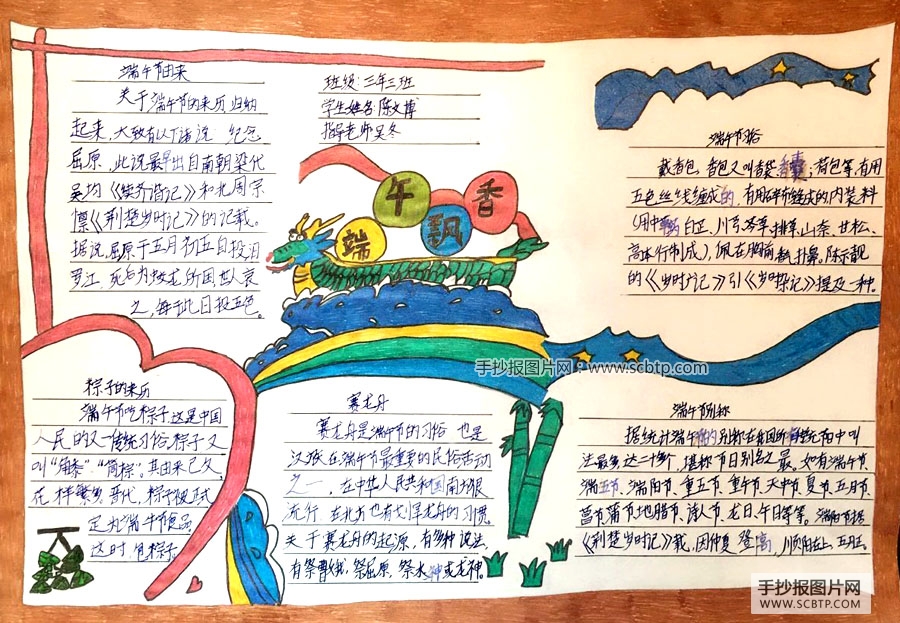 端午节由来
关于端午节的来历归纳
起来,大致有以下诸说 纪念
屈原,此说最早出自南朝梁代
吴均《续齐谐记》和北周宗
懔《荆楚岁时记》的记载。
据说,屈原于五月初五自投汨
罗江,死后为蛟龙所困世人哀
之,每于此日投五色
班级:三年三班
学生姓名 陈文博
指导老师 吴冬
端 午 飘 香
端午节习俗
戴香包,香包又叫香袋 香囊;荷包等,有用
五色丝线缠成的,有用碎布缝成的内装料
(用中 白芷、川芎、芩草、排草、山奈、甘松、
高本行制成),佩在胸前,香气扑鼻。陈示靓
的《岁时广记》引《岁时杂记》提及一种。
粽子的来历
端午节吃粽子,这是中国
人民的又一传统习俗粽子又
叫“角黍”.“筒粽”。其由来已久
花样繁多 晋代,粽子被正式
定为端午节食品
这时,包粽子
赛龙舟
赛龙舟是端午节的习俗 也是
汉族在端午节最重要的民俗活动
之一,在中华人民共和国南方很
流行 在北方也有划旱龙舟的习惯
关于赛龙舟的起源,有多种说法,
有祭曹娥,祭屈原,祭水神或龙神。
端午节别称
据统计端午节的别称在我国所有传统节日中叫
法最多达二十多个,堪称节日别名之最。如有端午节、
端五节、端阳节、重五节、重午节、天中节、夏节、五月节、
菖节、蒲节、地腊节、诗人节、龙日、午日等等。端阳节据
《荆楚岁时记》载,因仲夏 登高,顺阳在上,五月正
手抄报图片网:www.scbtp.com
手抄报图片网
WWW.SCBTP.COM